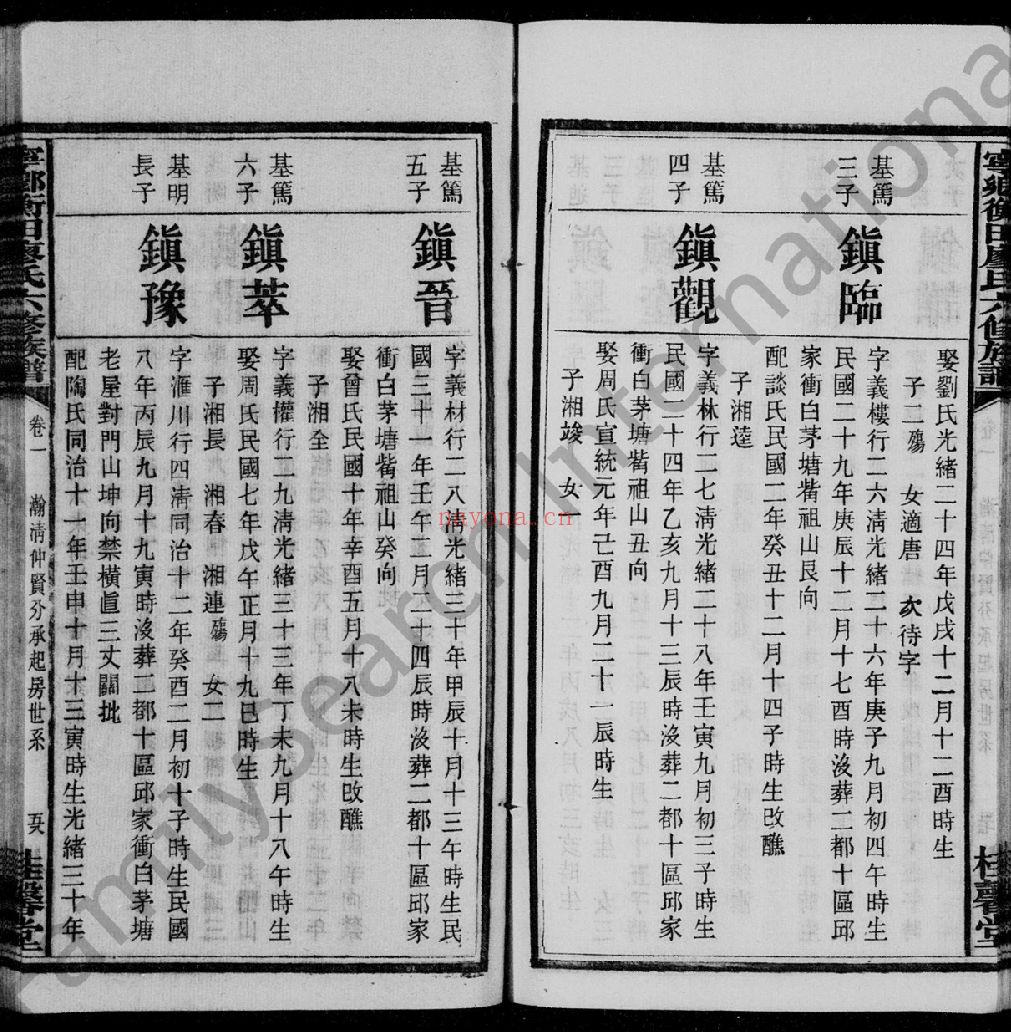 寧鄉衡田廖氏六修族譜
桂馨堂
娶劉氏光緒二十四年戊戌十二月十二酉時生
子二殤 女適唐 次待字
基篤三子
鎮臨
字義樓行二六清光緒二十六年庚子九月初四午時生
民國二十九年庚辰十二月十七酉時沒葬二都十區邱
家衝白茅塘觜祖山艮向
配談氏民國二年癸丑十二月十四子時生改醮
子湘逵
基篤四子
鎮觀
字義林行二七清光緒二十八年壬寅九月初三子時生
民國二十四年乙亥九月十三辰時沒葬二都十區邱家
衝白茅塘觜祖山丑向
娶周氏宣統元年己酉九月二十一辰時生
子湘竣 女一
基篤五子
鎮晉
字義材行二八清光緒三十年甲辰十月十三午時生民
國三十一年壬午二月二十四辰時沒葬二都十區邱家
衝白茅塘觜祖山癸向
娶曾氏民國十年辛酉五月十八未時生改醮
子湘全
基篤六子
鎮萃
字義權行二九清光緒三十三年丁未九月十八午時生
娶周氏民國七年戊午正月十九巳時生
子湘長 湘春 湘連殤 女二
基明長子
鎮豫
字滙川行四清同治十二年癸酉二月初十子時生民國
八年丙辰九月十九寅時沒葬二都十區邱家衝白茅塘
老屋對門山坤向禁橫直三丈闊批
配陶氏同治十一年壬申十月十三寅時生光緒三十年
寧鄉衡田廖氏六修族譜
卷一
瀚清仲賢分承起房世系
桂馨堂